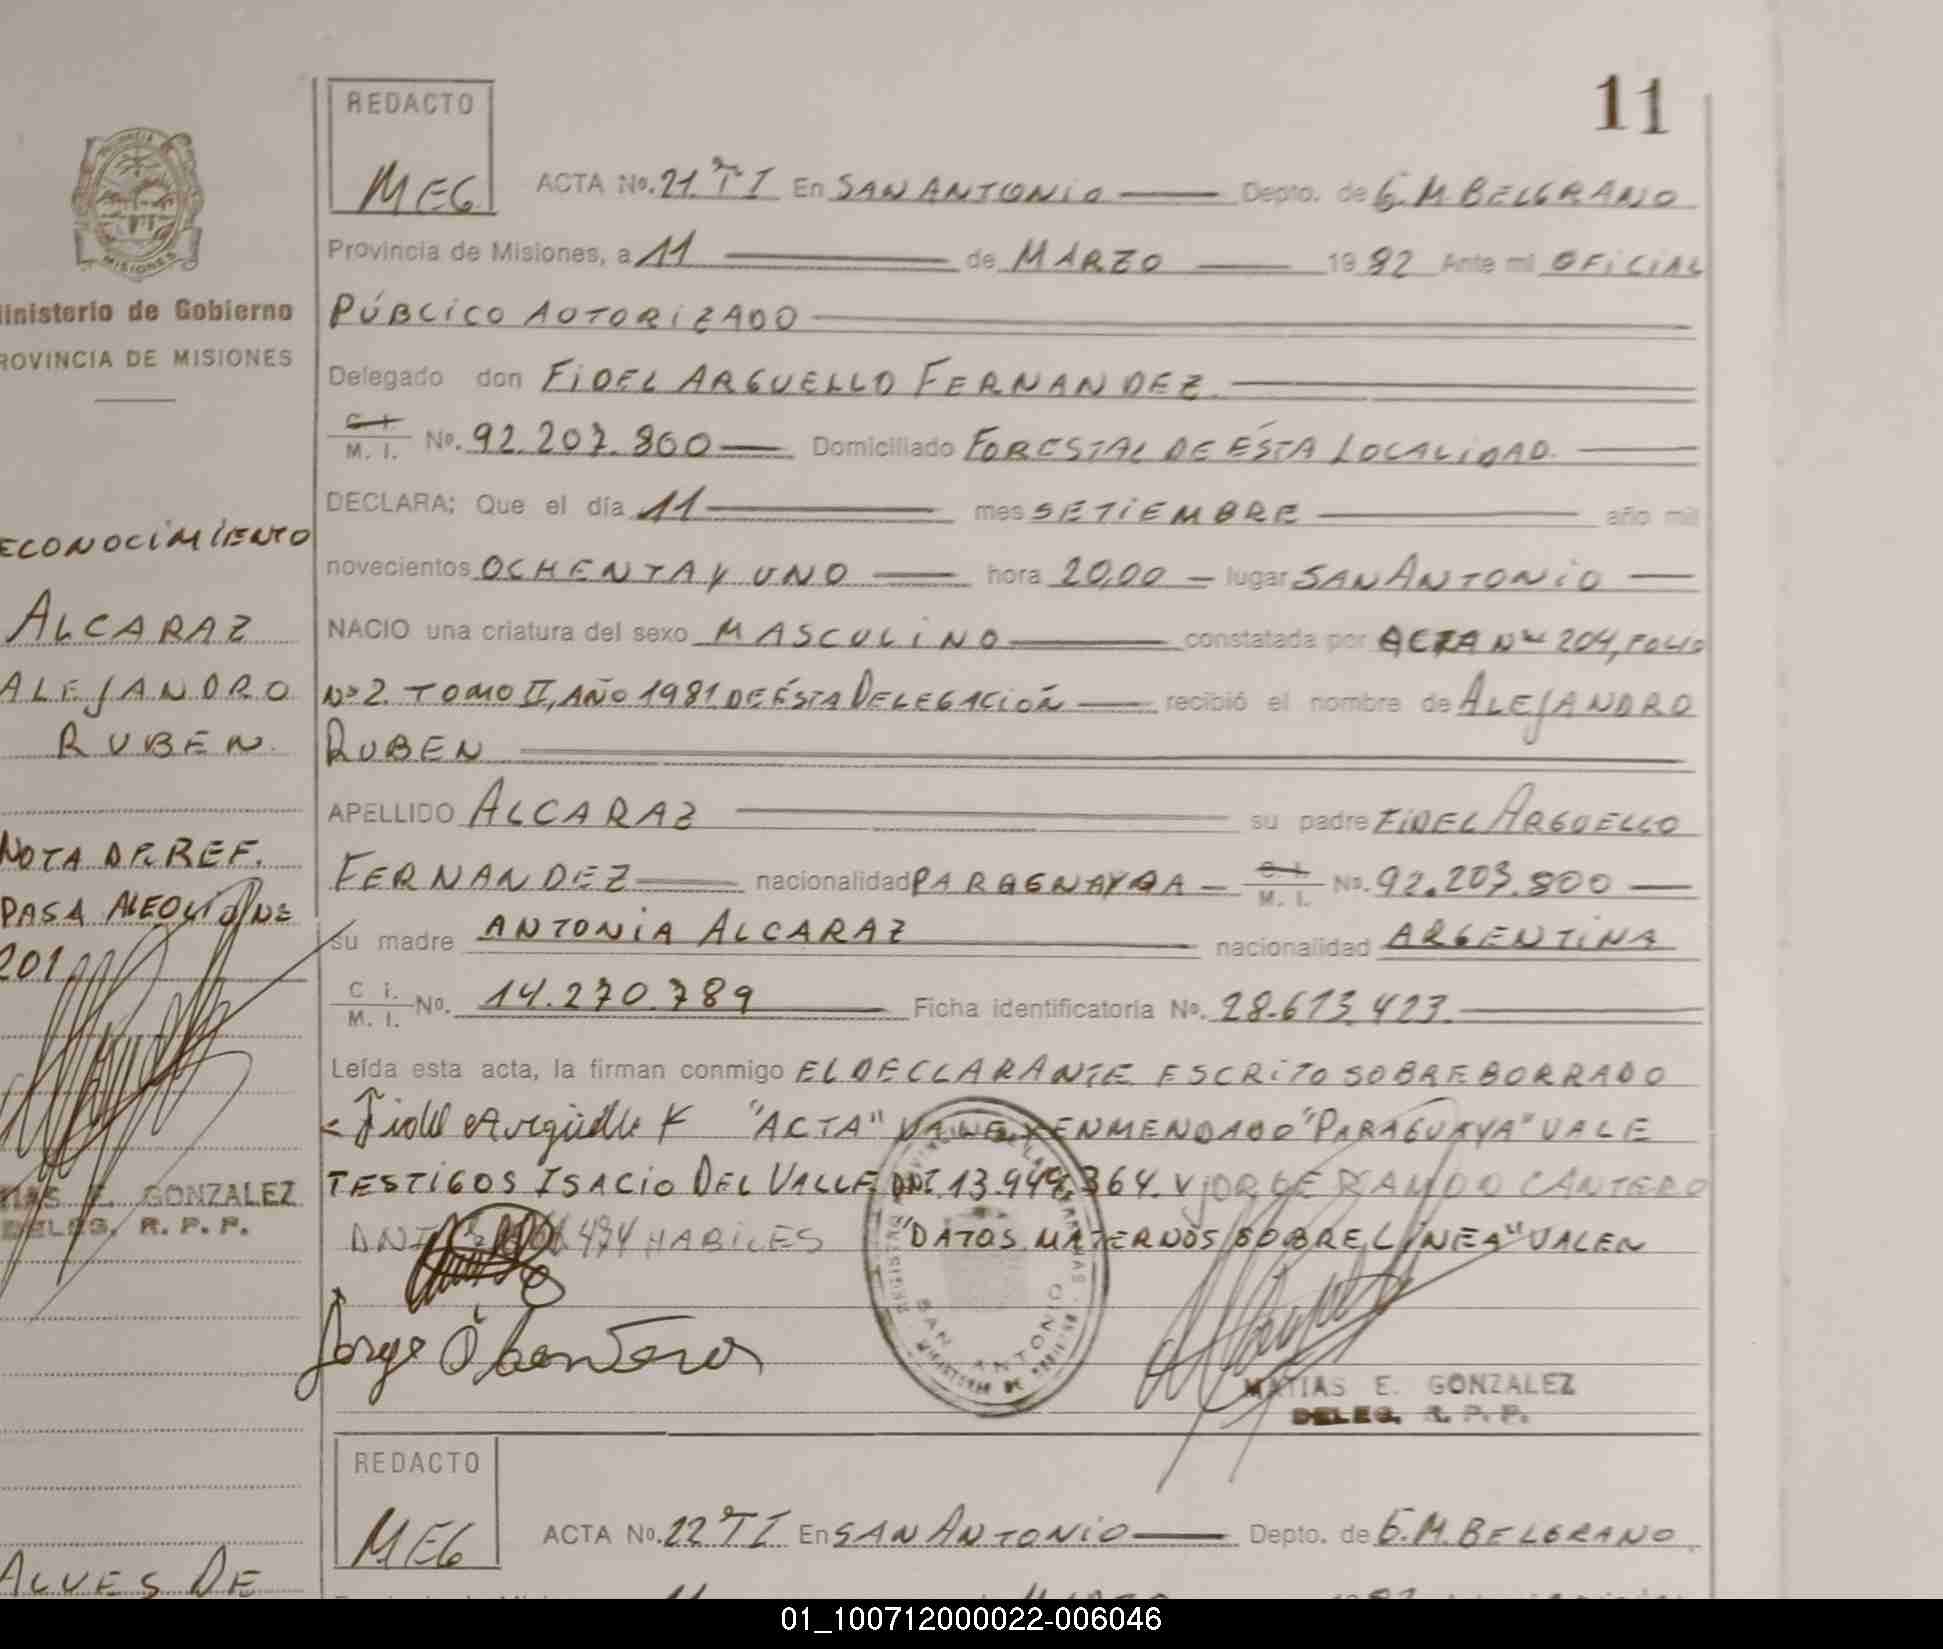 11
REDACTO
MEG
ACTA No. 21 TI En SAN ANTONIO Depto. de G.M. BELGRANO
Provincia de Misiones, a 11 de MARZO 1982 Ante mi OFICIAL
PÚBLICO AUTORIZADO
Delegado don FIDEL ARGUELLO FERNANDEZ
C. I.
M. I. No. 92.207.800 Domiciliado FORESTAL DE ÉSTA LOCALIDAD.
DECLARA: Que el día 11 mes SETIEMBRE año mil
novecientos OCHENTA Y UNO hora 20,00 lugar SAN ANTONIO
NACIO una criatura del sexo MASCULINO constatada por ACTA Nº 204, FOLIO
Nº 2. TOMO II, AÑO 1981 DE ÉSTA DELEGACIÓN recibió el nombre de ALEJANDRO
RUBEN
APELLIDO ALCARAZ su padre FIDEL ARGUELLO
FERNANDEZ nacionalidad PARAGUAYA C. I.
M. I. No. 92.203.800
su madre ANTONIA ALCARAZ nacionalidad ARGENTINA
C i.
M. I. No. 14.270.789 Ficha identificatoria No. 28.673.423.
Leída esta acta, la firman conmigo EL DECLARANTE ESCRITO SOBRE BORRADO
Fidel Argüello F "ACTA" VALE, ENMENDADO "PARAGUAYA" VALE
TESTIGOS ISACIO DEL VALLE DNI. 13.949.364. Y JORGE CANTERO
DNI 474 HABILES "DATOS MATERNOS SOBRE LÍNEA" VALEN
Jorge O Cantero
SAN ANTONIO
MATIAS E. GONZALEZ
DELEG. R. P. P.
PROVINCIA
MISIONES
Ministerio de Gobierno
ROVINCIA DE MISIONES
ECONOCIMIENTO
ALCARAZ
ALEJANDRO
RUBEN.
NOTA DE REF.
PASA AL FOLIO Nº
201
TIAS E. GONZALEZ
DELEG. R. P. P.
REDACTO
MEG
ACTA No. 22 TI En SAN ANTONIO Depto. de G.M. BELGRANO
ALVES DE
01_100712000022-006046